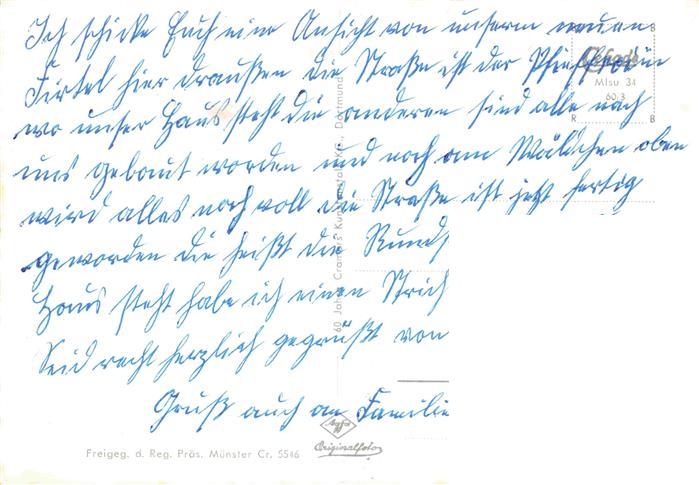 Ich schicke Euch eine Ansicht von unserm neuen
Firtel hier draußen die Straße ist der
wo unser Haus steht die anderen sind alle nach
uns gebaut worden und noch am Wäldchen oben
wird alles noch voll die Straße ist jetzt fertig
geworden die heißt die Rund
Haus steht habe ich einen Strich
Seid recht herzlich gegrüßt von
Gruß auch an Familie
B
Cekade
Mlsu 34
60,3
R B
60 Jahre Cramers Kunstanstalt KG., Dortmund
Agfa
Originalfoto
Freigeg. d. Reg. Präs. Münster Cr. 5546